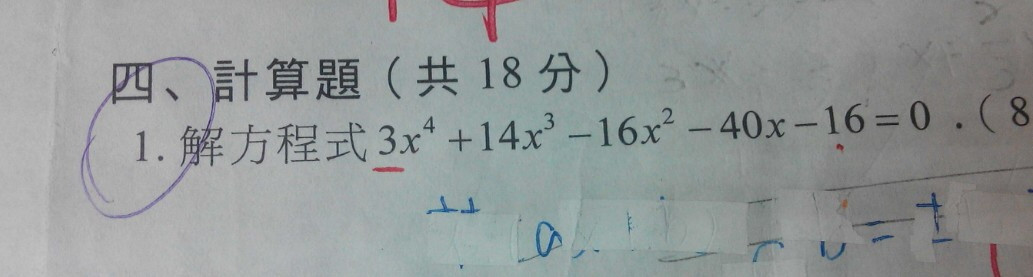 四、計算題（共 18 分）
1. 解方程式 3x⁴ + 14x³ − 16x² − 40x − 16 = 0 .（8